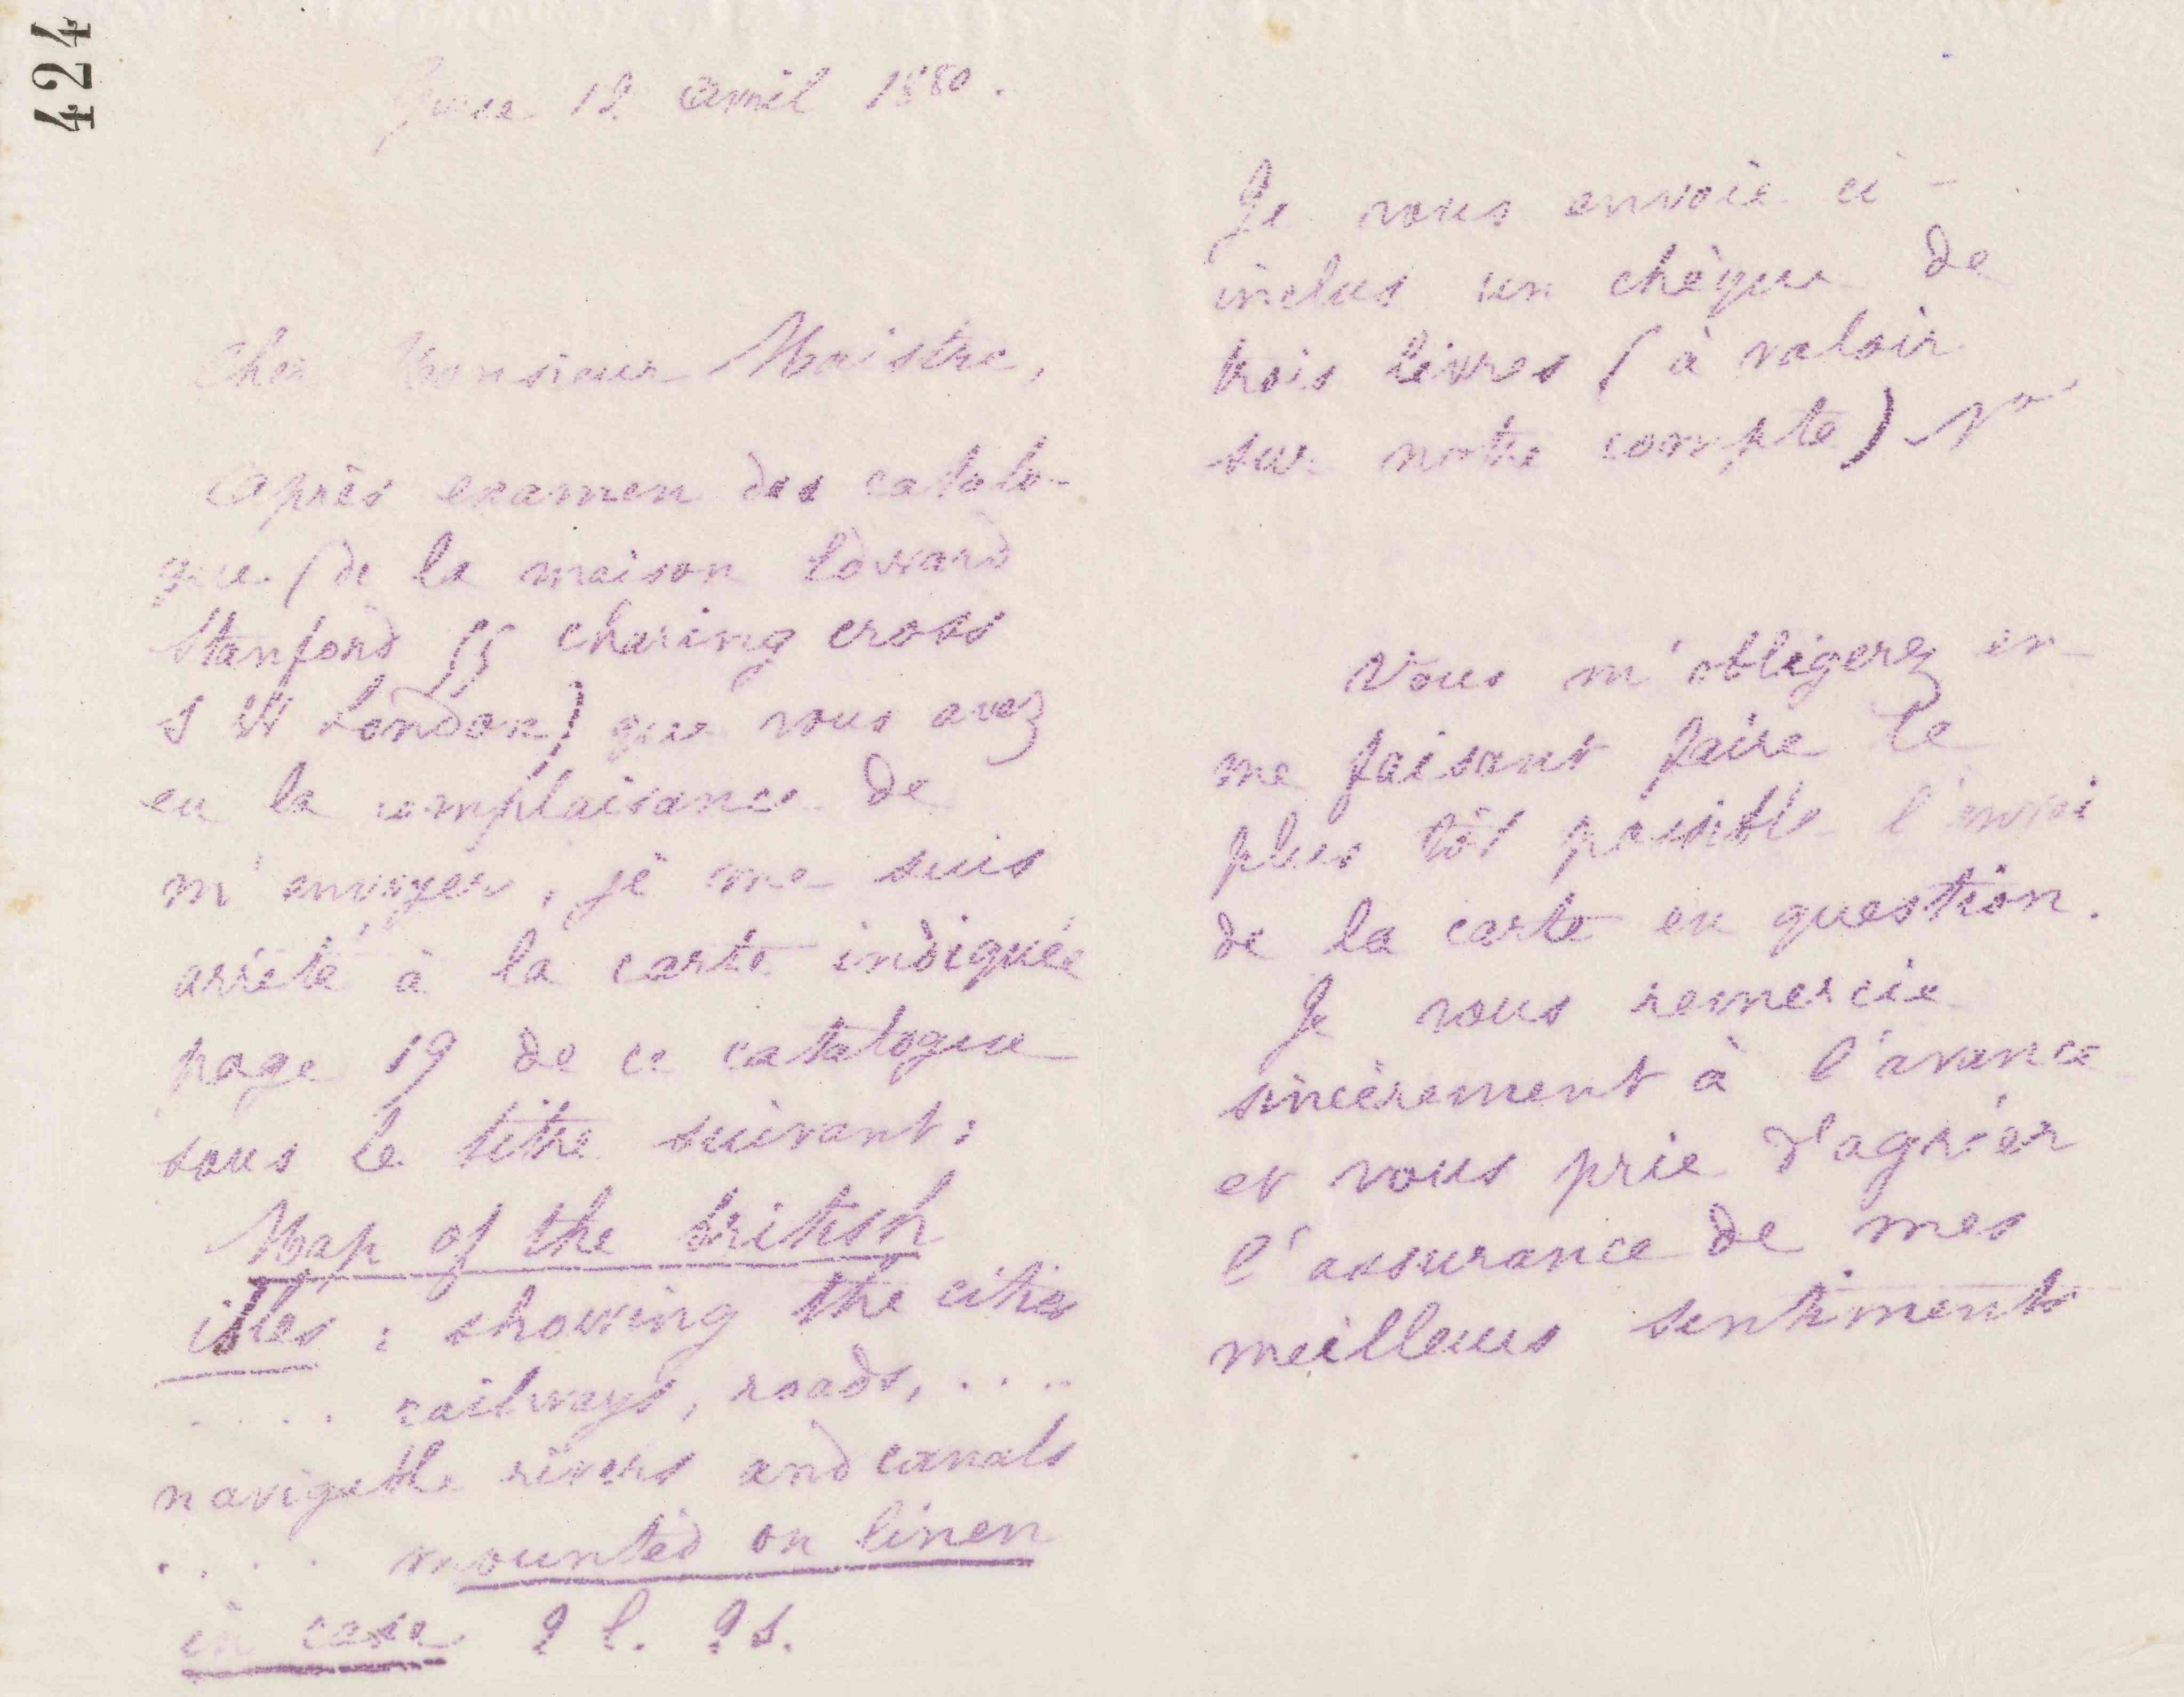 424
Guise 12 Avril 1880.
Cher Monsieur Maistre,
Après examen des catalo-
gue (de la maison Edward
Stanford 55 charing cross
S W London) que vous avez
eu la complaisance de
m'envoyer, je me suis
arrêté à la carte indiquée
page 19 de ce catalogue
sous le titre suivant:
Map of the british
isles : showing the cities
.... railways, roads, ....
navigable rivers and canals
.... mounted on linen
in case 2 l. 2 s.
Je vous envoie ci-
inclus un chèque de
trois livres (à valoir
sur notre compte)
Vous m'obligerez en
me faisant faire le
plus tôt possible l'envoi
de la carte en question.
Je vous remercie
sincèrement à l'avance
et vous prie d'agréer
l'assurance de mes
meilleurs sentiments